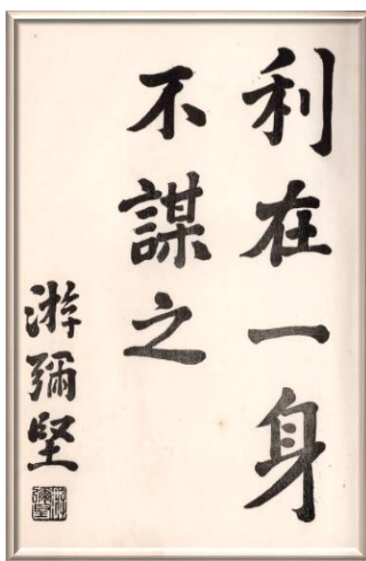 利在一身
不謀之
游彌堅